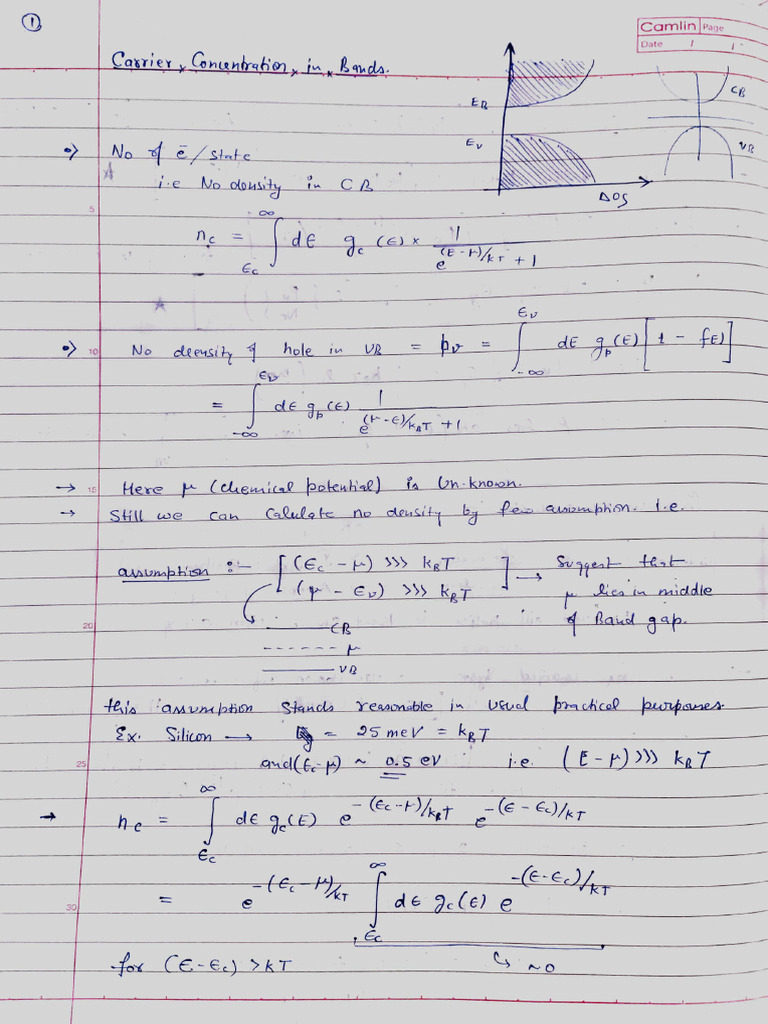 ①
Camlin Page
Date / /
Carrier Concentration in Bands.
CB
E_B
E_v
VB
DOS
⇒ No of ē / state
i.e No density in CB
5
n_c = ∫_{ϵ_c}^{∞} dϵ g_c (ϵ) × 1 / (e^{(E - μ)/kT} + 1)
⇒ 10 No deensity of hole in VB = p_v = ∫_{-∞}^{ϵ_v} dϵ g_p(ϵ) [1 - f(E)]
= ∫_{-∞}^{ϵ_v} dϵ g_p(ϵ) 1 / (e^{(μ - ϵ)/k_BT} + 1)
→ 15 Here μ (chemical potential) is Un-known.
→ Still we can Calulate no density by few assumption. i.e.
assumption :- [(ϵ_c - μ) >>> k_BT
(μ - ϵ_v) >>> k_BT] → Suggest that
μ lies in middle
of Band gap.
20
CB
μ
VB
this assumption Stands reasonable in usual practical purposes.
Ex. Silicon → = 25 meV = k_BT
25 and (ϵ_c-μ) ~ 0.5 eV i.e. (E - μ) >>> k_BT
→ n_c = ∫_{ϵ_c}^{∞} dϵ g_c(ϵ) e^{-(ϵ_c-μ)/k_BT} e^{-(ϵ - ϵ_c)/kT}
30 = e^{-(ϵ_c-μ)/kT} ∫_{ϵ_c}^{∞} dϵ g_c(ϵ) e^{-(ϵ-ϵ_c)/kT}
for (ϵ-ϵ_c) > kT ↳ ~0